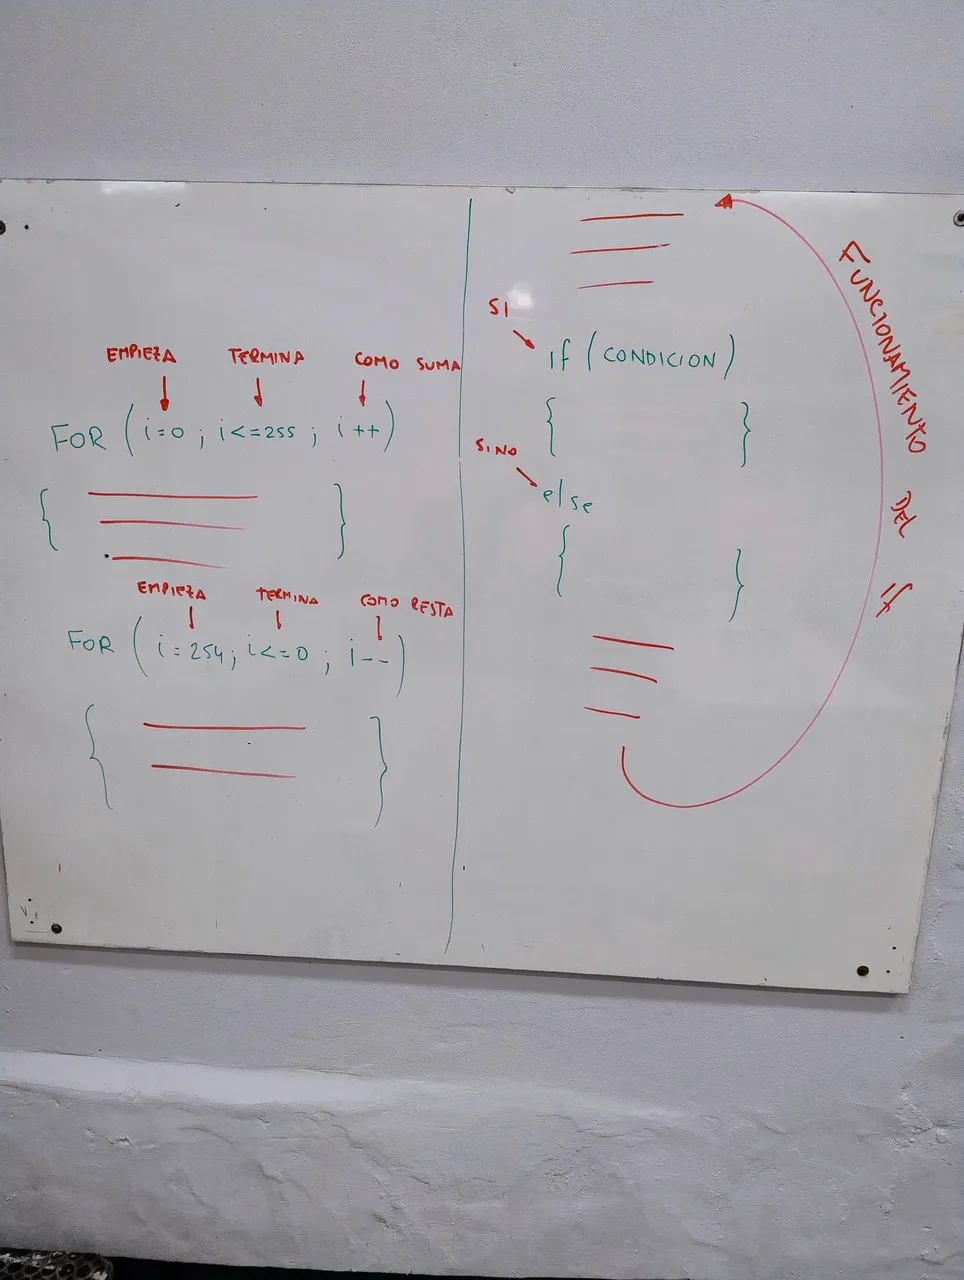 EMPIEZA TERMINA COMO SUMA
FOR (i=0 ; i<=255 ; i ++)
{ }
EMPIEZA TERMINA COMO RESTA
FOR (i=254; i<=0 ; i--)
{ }
SI
if (CONDICION)
{ }
SINO
else
{ }
FUNCIONAMIENTO DEL if